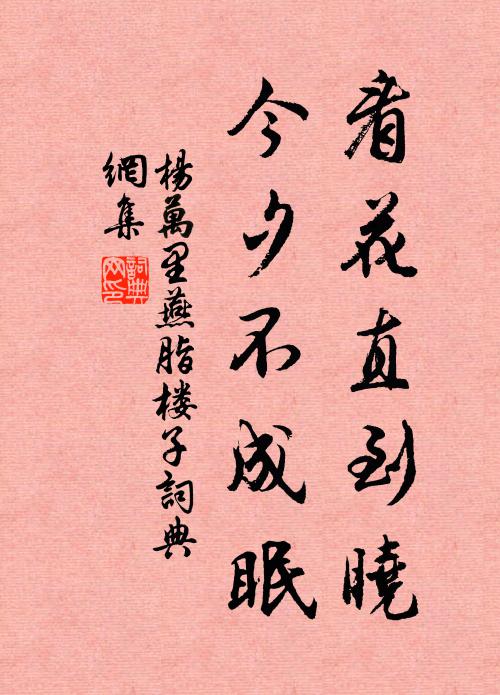 看花直到曉
今夕不成眠
楊萬里燕脂楼子詞典
網集
詞典
网印